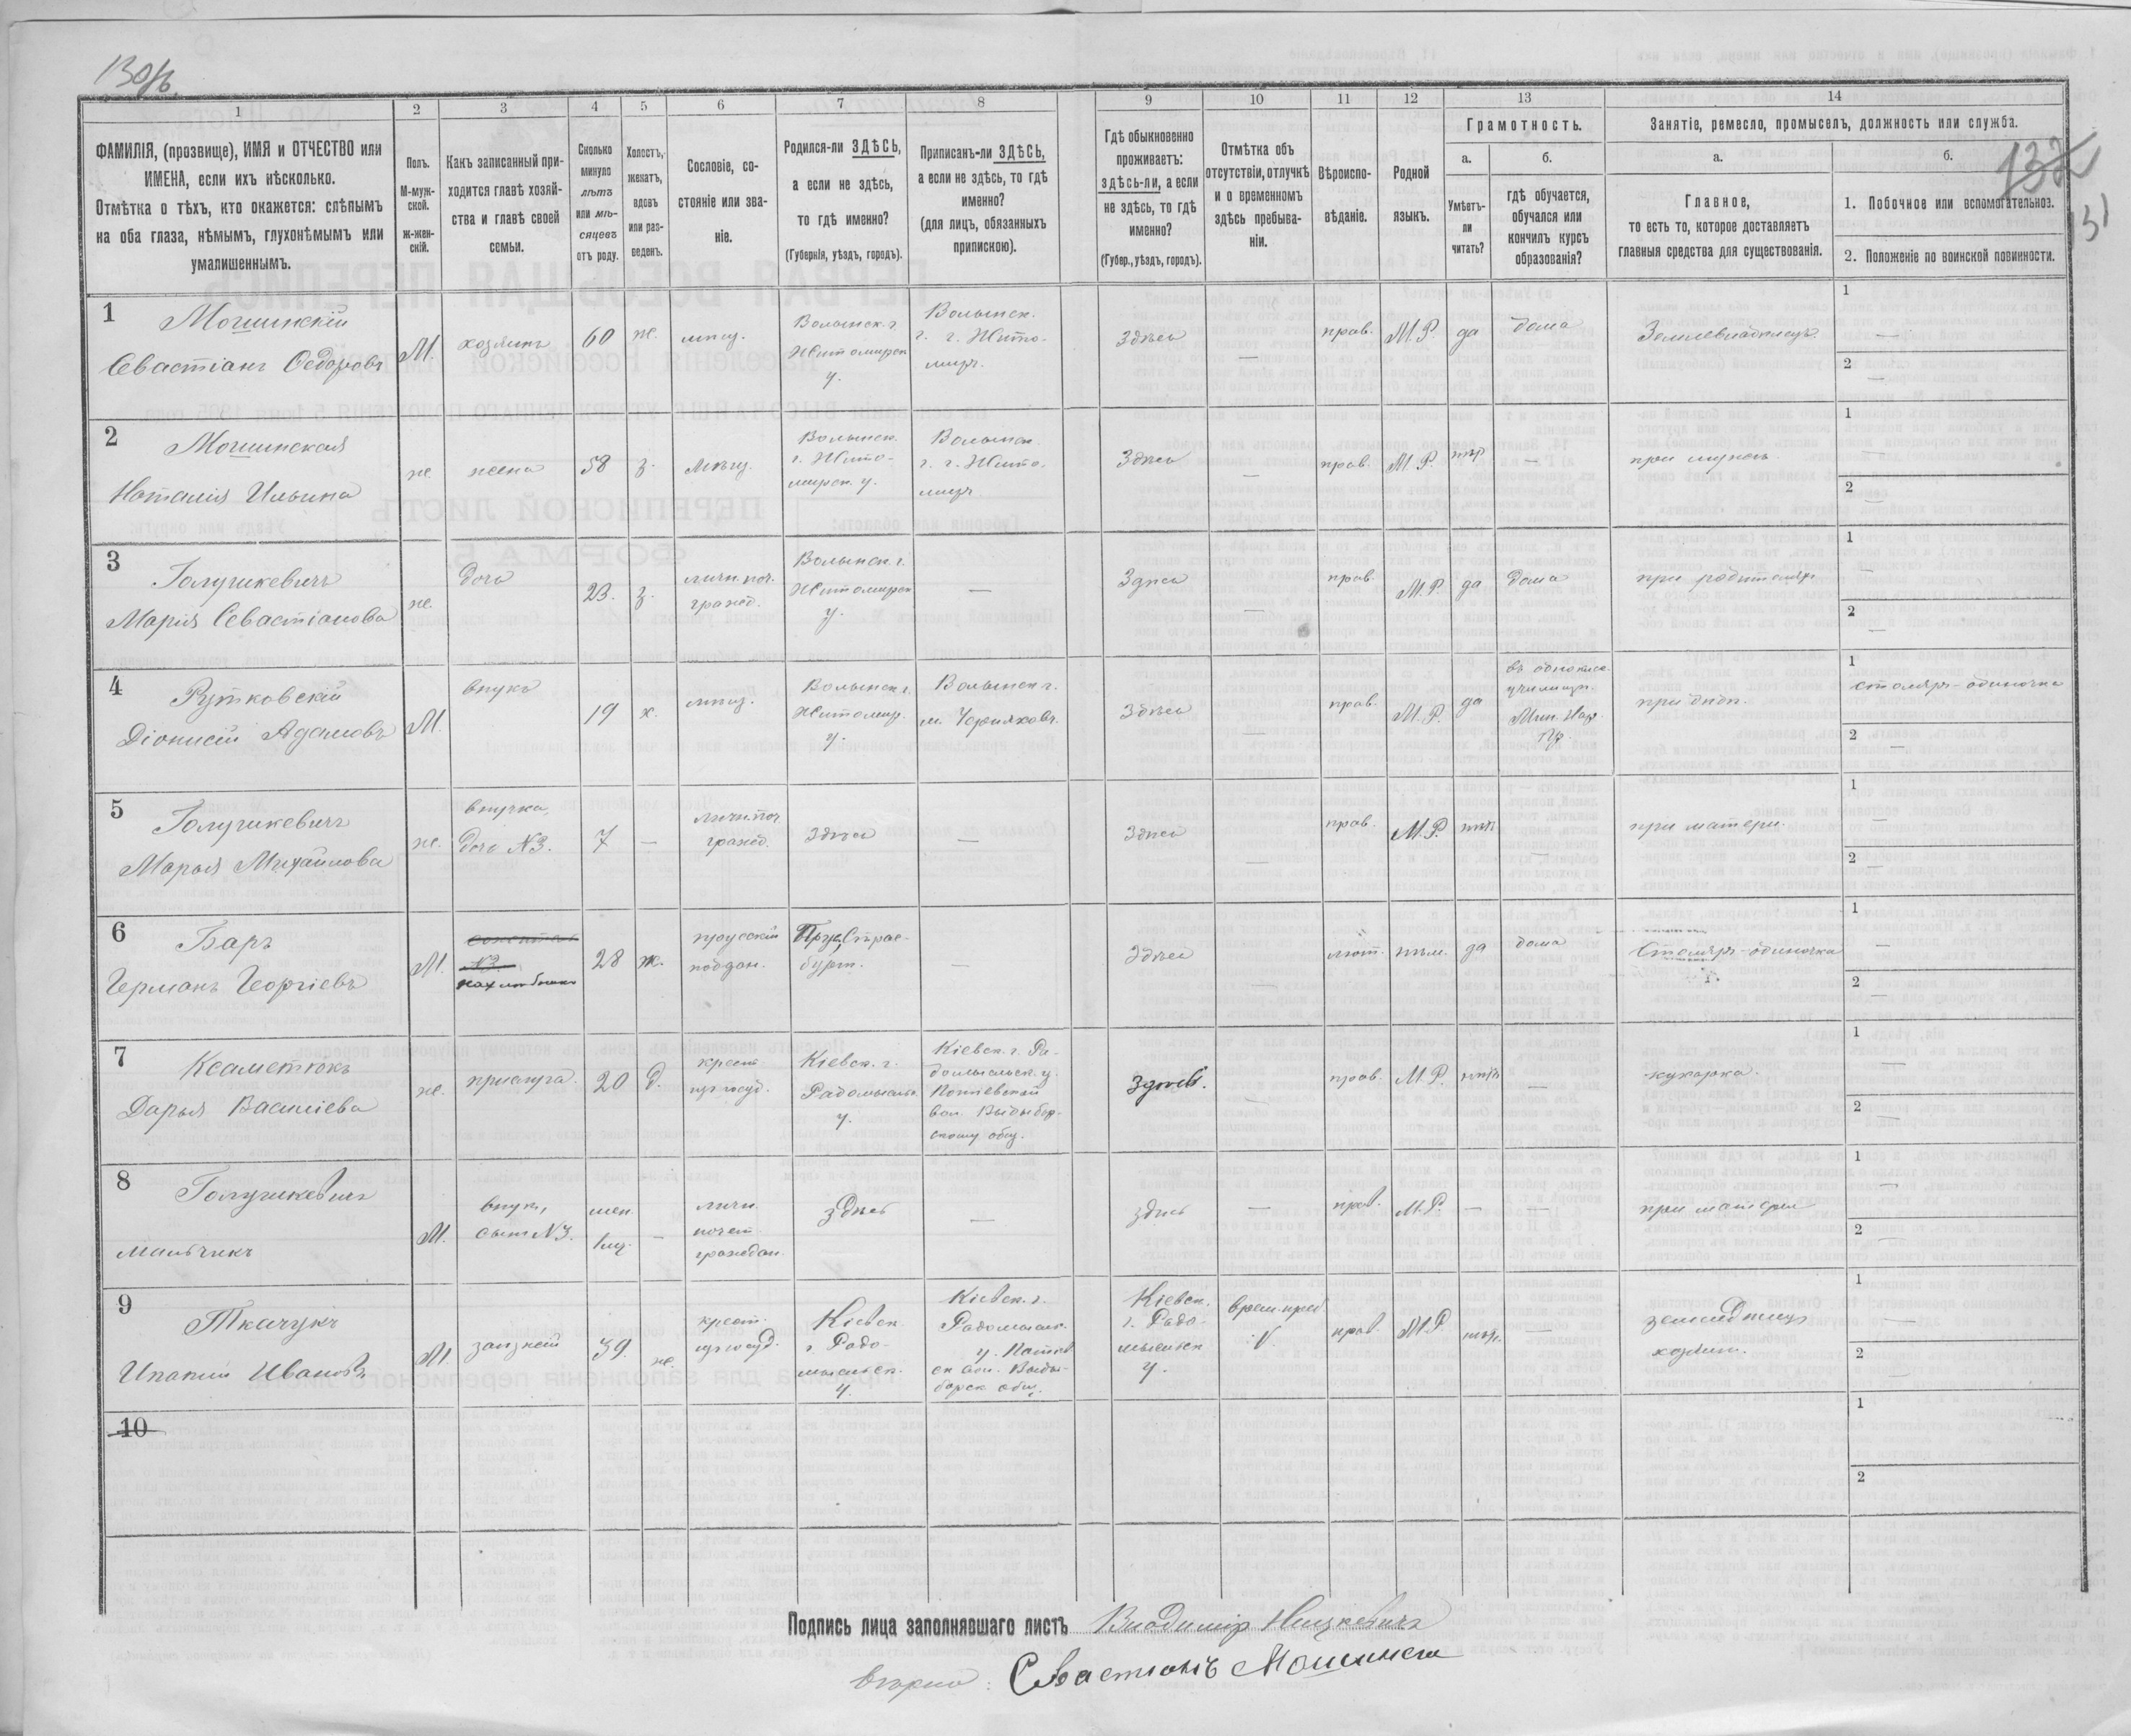 130об.
1
2
3
4
5
6
7
8
9
10
11
12
13
14
ФАМИЛІЯ, (прозвище), ИМЯ и ОТЧЕСТВО или
ИМЕНА, если ихъ нѣсколько.
Отмѣтка о тѣхъ, кто окажется: слѣпымъ
на оба глаза, нѣмымъ, глухонѣмымъ или
умалишеннымъ.
Полъ.
М-муж-
ской.
ж-жен-
скій.
Какъ записанный при-
ходится главѣ хозяй-
ства и главѣ своей
семьи.
Сколько
минуло
лѣтъ
или мѣ-
сяцевъ
отъ роду.
Холостъ,
женатъ,
вдовъ
или раз-
веденъ.
Сословіе, со-
стояніе или зва-
ніе.
Родился-ли ЗДѢСЬ,
а если не здѣсь,
то гдѣ именно?
(Губернія, уѣздъ, городъ).
Приписанъ-ли ЗДѢСЬ,
а если не здѣсь, то гдѣ
именно?
(для лицъ, обязанныхъ
припискою).
Гдѣ обыкновенно
проживаетъ:
здѣсь-ли, а если
не здѣсь, то гдѣ
именно?
(Губер., уѣздъ, городъ).
Отмѣтка объ
отсутствіи, отлучкѣ
и о временномъ
здѣсь пребыва-
ніи.
Вѣроиспо-
вѣданіе.
Родной
языкъ.
Грамотность.
а.
Умѣетъ-
ли
читать?
б.
гдѣ обучается,
обучался или
кончилъ курсъ
образованія?
Занятіе, ремесло, промыселъ, должность или служба.
а.
Главное,
то есть то, которое доставляетъ
главныя средства для существованія.
б.
1. Побочное или вспомогательное.
2. Положеніе по воинской повинности.
132
131
1
Мошинскій
Севастіанъ Ѳедоровъ
М.
хозяинъ
60
ж.
мѣщ.
Волынск. г.
Житомирск
у.
Волынск.
г. г. Жито-
миръ.
Здѣсь
—
прав.
М.Р.
да
дома
Землевладѣлецъ.
1
—
2
—
2
Мошинская
Наталія Ильина
ж.
жена
58
з.
Мѣщ.
Волынск.
г. Жито-
мирск. у.
Волынск.
г. г. Жито-
миръ
Здѣсь
—
прав.
М.Р.
нѣт
—
при мужѣ.
1
—
2
—
3
Галушкевичъ
Марія Севастіанова
ж.
дочь
23.
з.
личн. поч.
гражд.
Волынск. г.
Житомирск
у.
—
Здѣсь
—
прав.
М.Р.
да
дома
при родителяхъ
1
—
2
—
4
Рутковскій
Діонисій Адамовъ
М.
внукъ
19
х.
мѣщ.
Волынск г.
Житомир.
у.
Волынск г.
м. Черняховъ.
Здѣсь
—
прав.
М.Р.
да
въ однокла.
училищѣ.
Мин. Нар.
Пр.
при дѣдѣ.
1
столяръ-одиночка
2
—
5
Галушкевичъ
Марья Михайлова
ж.
внучка,
дочь №3.
7
—
личн. поч.
гражд.
Здѣсь
—
Здѣсь
—
прав.
М.Р.
нѣт
—
при матери.
1
—
2
—
6
Баръ
Германъ Георгіевъ
М.
№3.
нахлѣбникъ
28
ж.
прусскій
поддан.
Прус. Страс-
бург.
—
Здѣсь
—
лют.
нѣм.
да
дома
Столяръ-одиночка
1
—
2
—
7
Ксаметюкъ
Дарья Васильева
ж.
прислуга.
20
д.
крест.
изъ госуд.
Кіевск. г.
Радомысльск.
у.
Кіевск. г. Ра-
домысльск. у.
Потіевской
вол. Выдыбор-
скому общ.
Здѣсь.
—
прав.
М.Р.
нѣтъ
—
кухарка.
1
—
2
—
8
Галушкевичъ
мальчикъ
М.
внукъ,
сынъ №3.
мен.
1 мц.
—
личн.
почет
граждан.
здѣсь
—
здѣсь
—
прав.
М.Р.
—
—
при матери
1
—
2
—
9
Ткачукъ
Ипатій Ивановъ
М
заѣзжій
39.
ж.
крест.
изъ госуд.
Кіевск
г. Радо-
мысльск.
у.
Кіевск. г.
Радомысльс.
у. Потіев
ск вол. Выды-
борск общ.
Кіевск.
г. Радо-
мысльск
у.
врем. преб.
V.
прав.
М.Р.
нѣт.
—
земледѣлецъ
хозяин.
1
—
2
—
10
1
2
Подпись лица заполнявшаго листъ Владимір Ницкевичъ
Севастіанъ Мошинскій